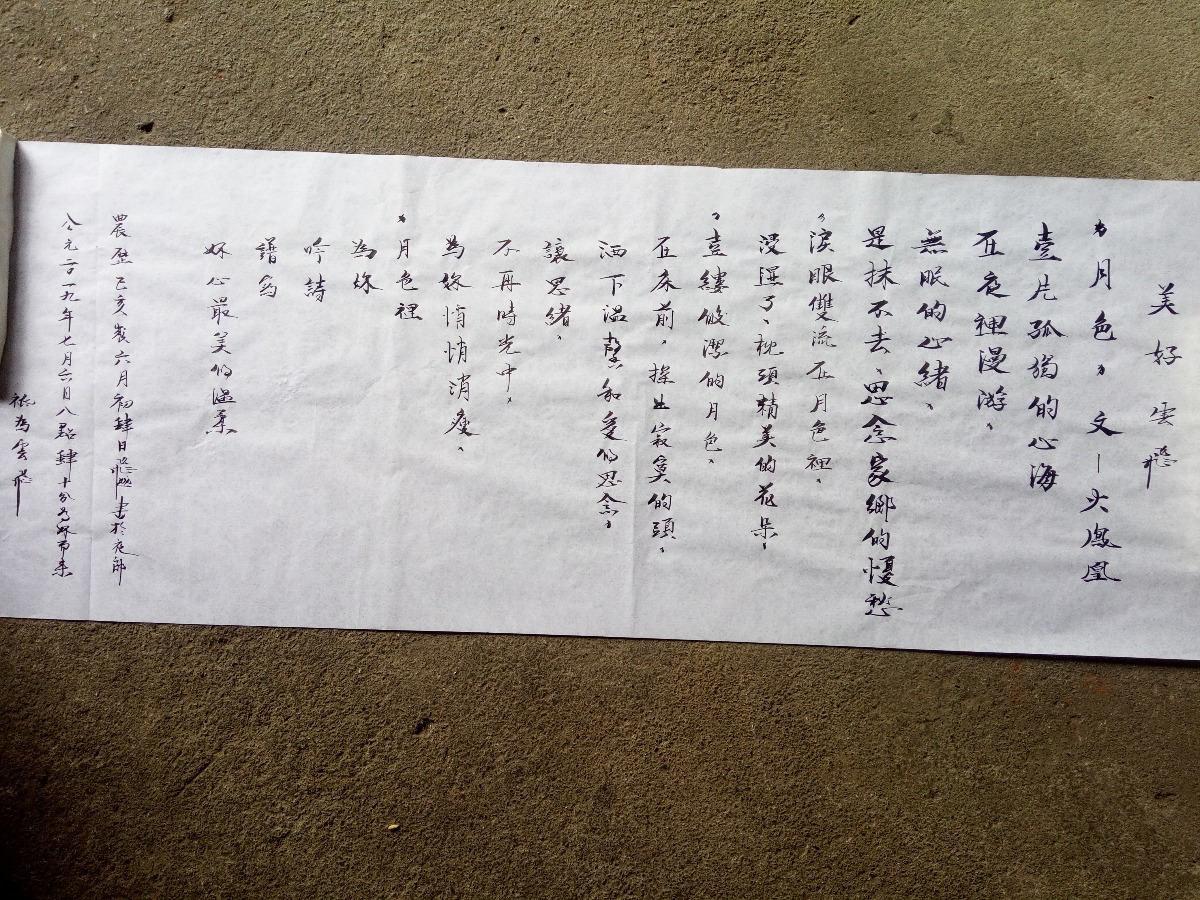 美好雲飛
"月色"文—火鳳凰
壹片孤獨的心海
在夜裡漫游、
無眠的心緒、
是抹不去、思念家鄉的憂愁
"淚眼雙流在月色裡、
浸濕了、枕頭精美的花朵、
"壹縷皎潔的月色、
在床前，探出寂寞的頭、
洒下溫馨和愛的思念、
讓思緒、
不再時光中、
為妳悄悄消瘦、
"月色裡
為妳
吟詩
譜寫
妳心最美的溫柔
農歷己亥歲六月初肆日 書於
公元二〇一九年七月六日八點肆十分
雲飛